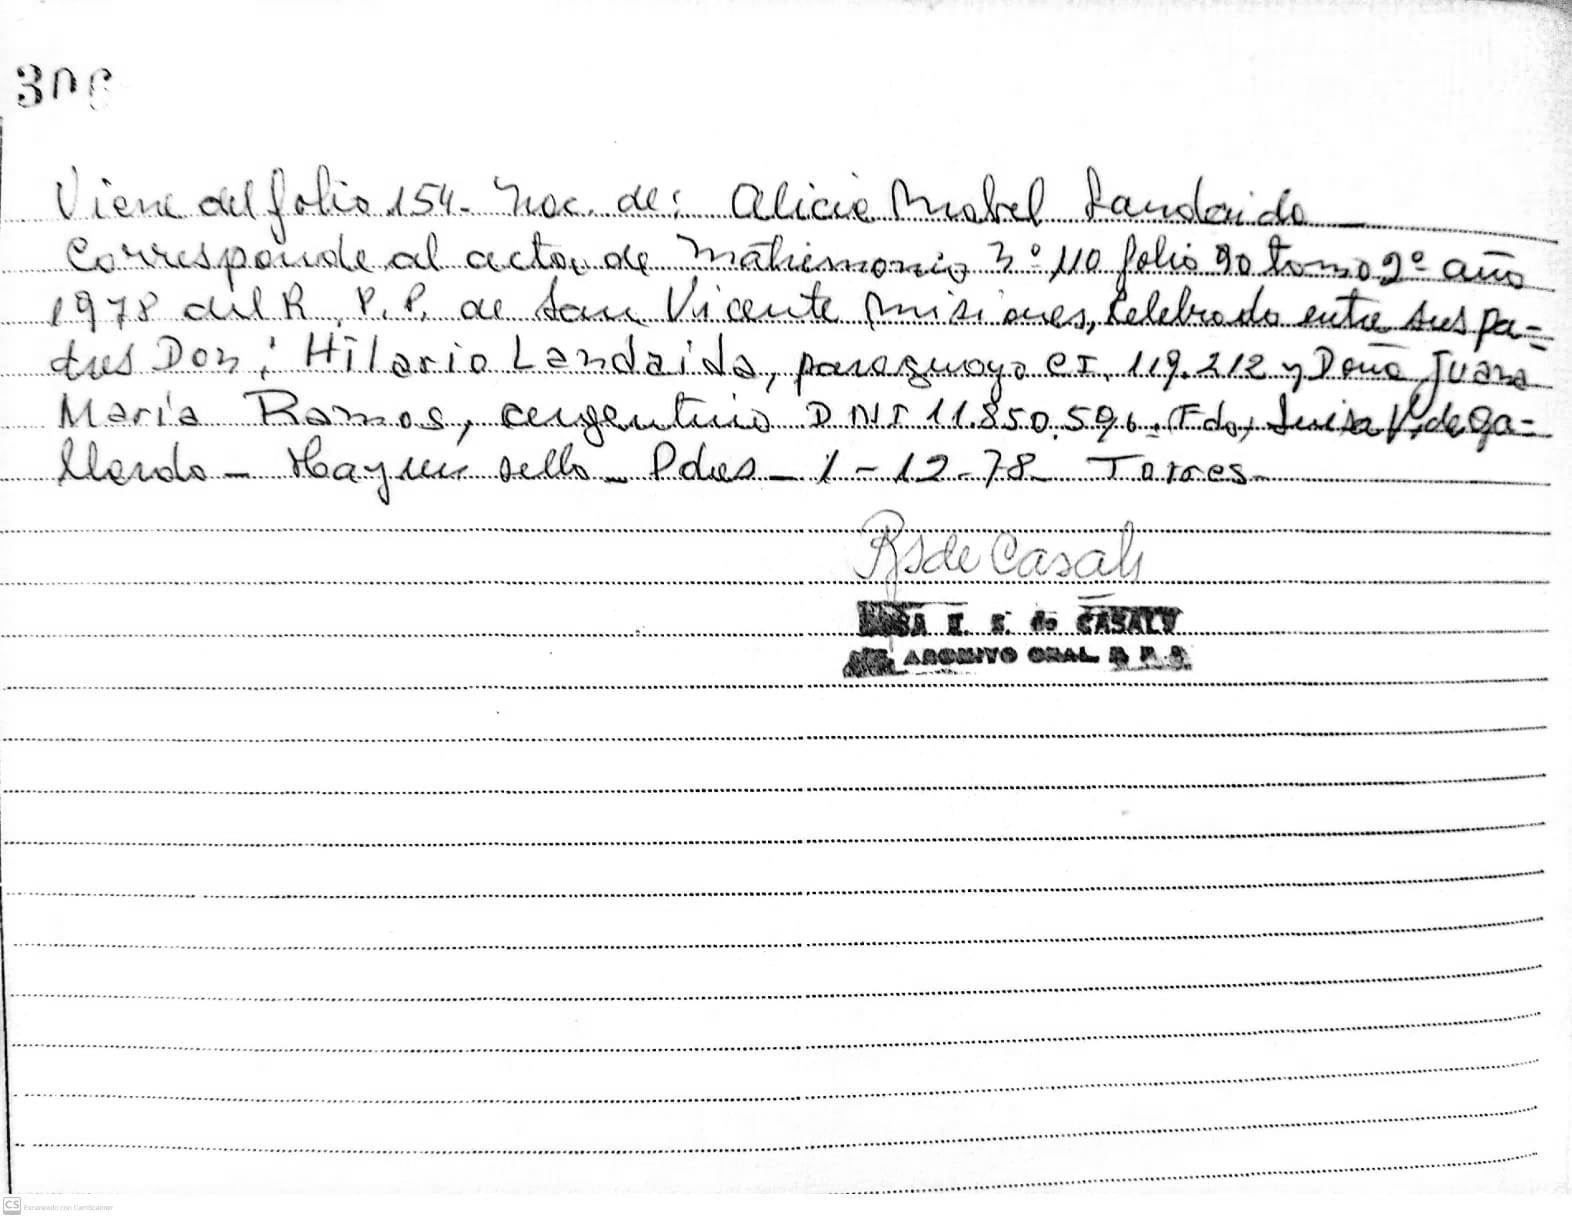 306
Viene del folio 154- Nac. de: Alicia Mabel Landaida
Corresponde al acta de Matrimonio Nº 110 folio 90 tomo 2º año
1978 del R. P. P. de San Vicente Misiones, celebrado entre sus pa=
dres Don: Hilario Landaida, paraguayo CI. 119.212 y Doña Juana
María Ramos, argentina DNI 11.850.596. Fdo, Luisa V. de Ga=
llardo - Hay un sello - Pdas - 1 - 12 - 78 - Torres -
R S de Casals
S. de CASALS
ARCHIVO GRAL. R. P. P.
CS Escaneado con CamScanner